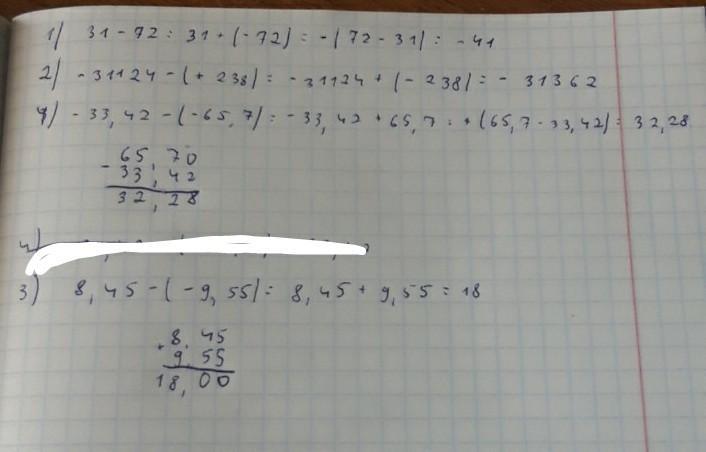 1) 31 - 72 = 31 + (-72) = -(72 - 31) = -41
2) -31124 - (+238) = -31124 + (-238) = -31362
4) -33,42 - (-65,7) = -33,42 + 65,7 = +(65,7 - 33,42) = 32,28
- 65,70
33,42
32,28
4)
3) 8,45 - (-9,55) = 8,45 + 9,55 = 18
+ 8,45
9,55
18,00